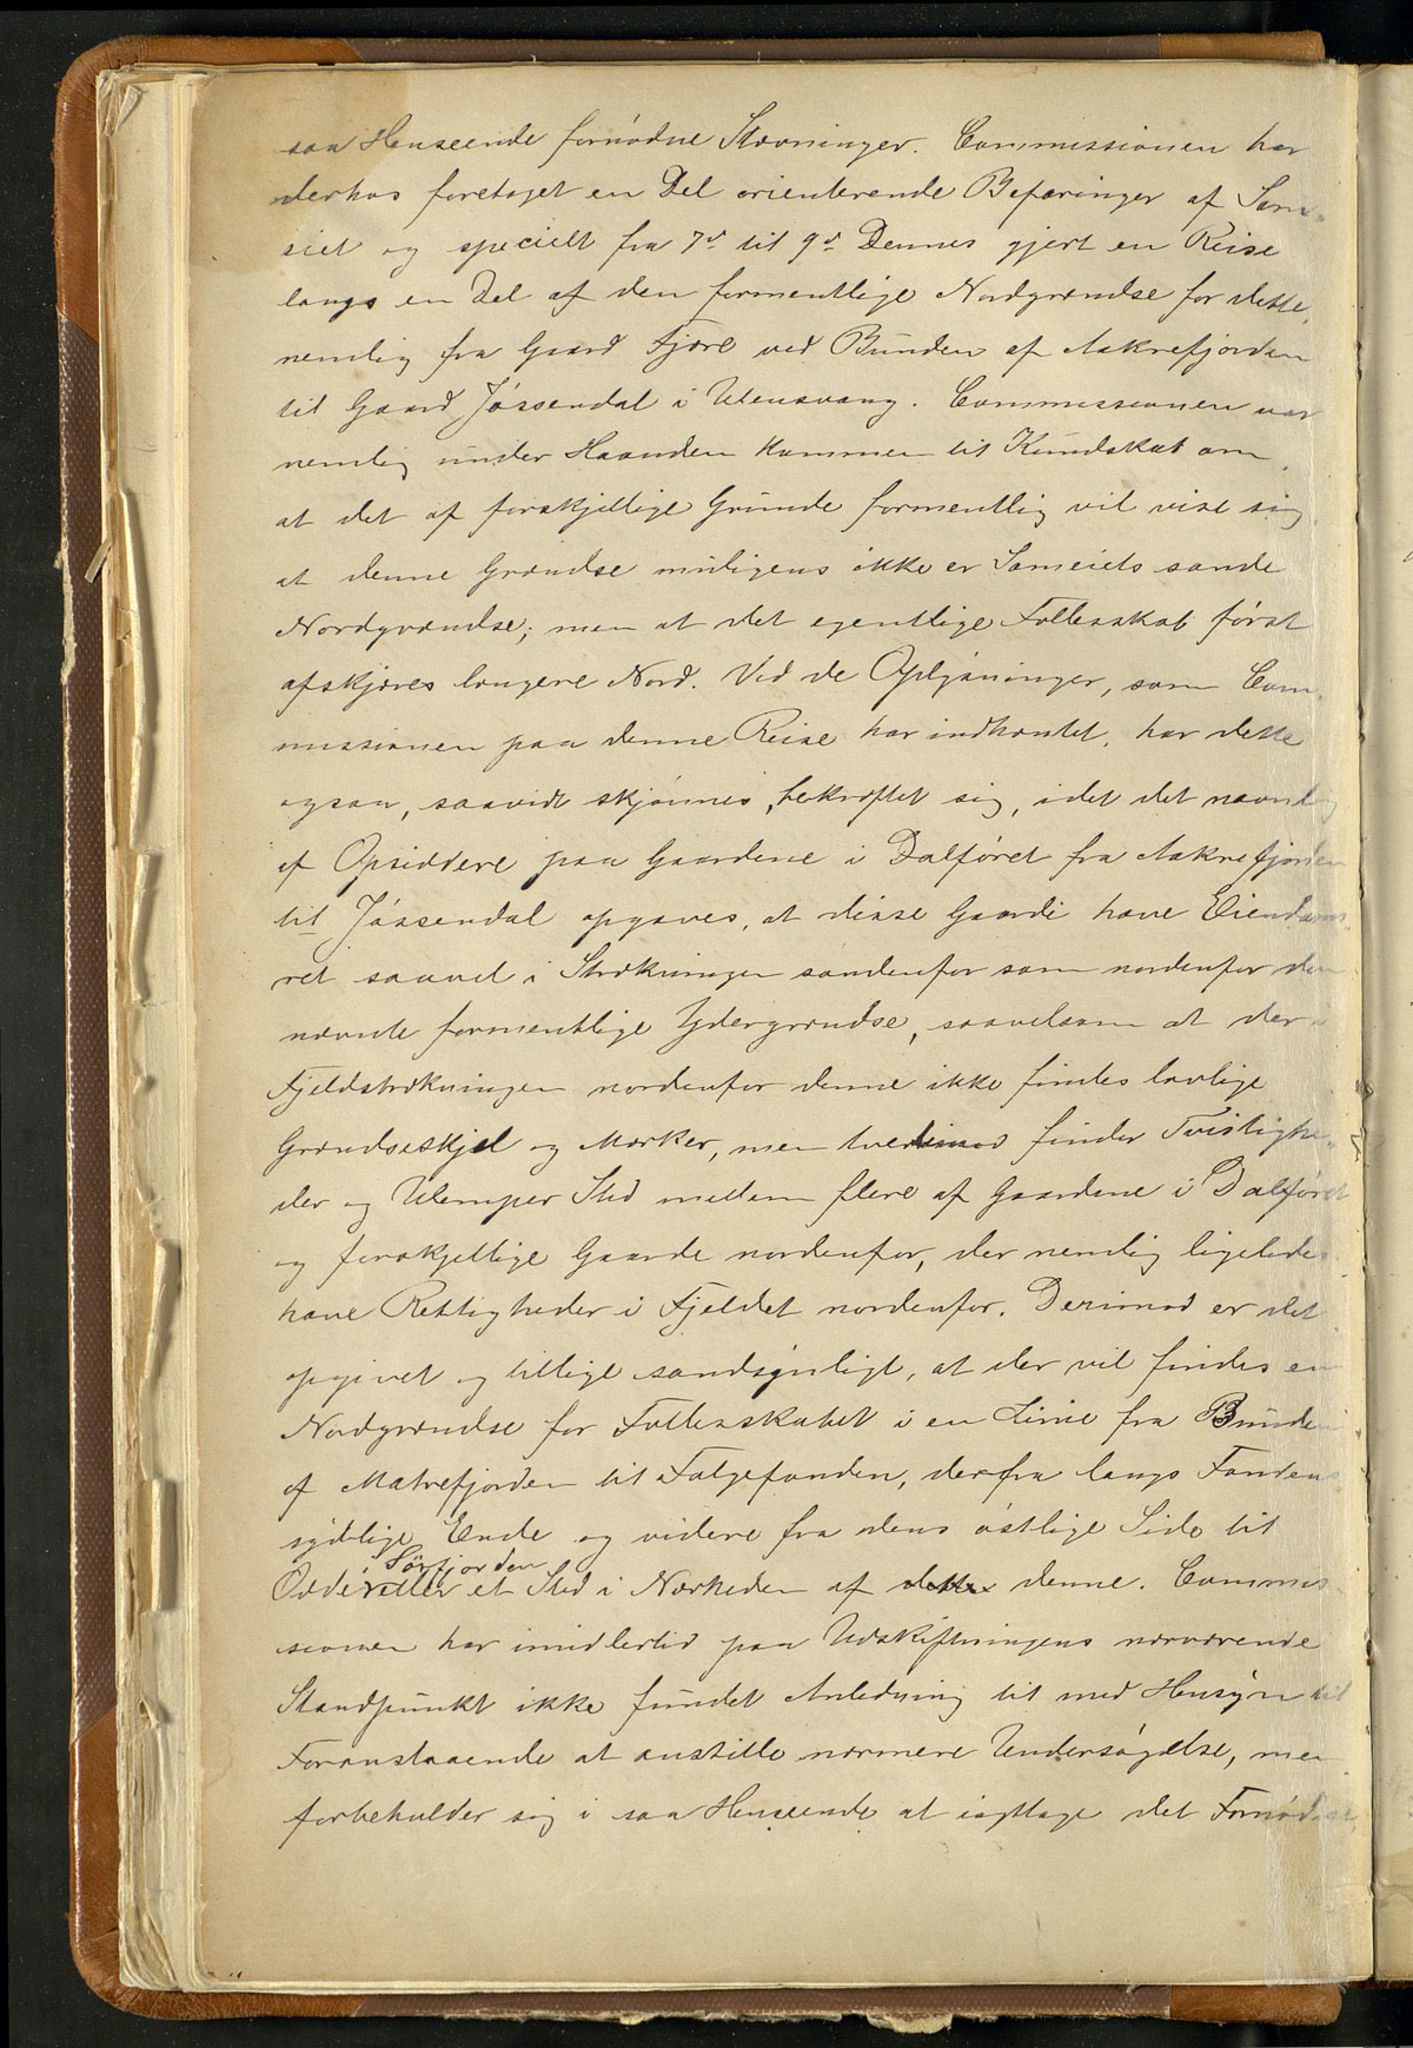 saa Henseende fornødne Stævninger. Commissionen har
derhos foretaget en Del orienterende Befaringer af Sam-
eiet og specielt fra 7de til 9de Dennes gjort en Reise
langs en Del af den formentlige Nordgrændse for dette,
nemlig fra Gaard Fjære ved Bunden af Aakrefjorden
til Gaard Jøssendal i Ulensvang. Commissionen var
nemlig under Haanden kommen til Kundskab om,
at det af forskjellige Grunde formentlig vil vise sig
at denne Grændse muligens ikke er Sameiets sande
Nordgrændse; men at det egentlige Fællesskab først
afskjæres længere Nord. Ved de Oplysninger, som Com-
missionen paa denne Reise har indhentet, har dette
ogsaa, saavidt skjønnes, bekræftet sig, idet det navnlig
af Opsiddere paa Gaardene i Dalføret fra Aakrefjorden
til Jøssendal opgaves, at disse Gaarde have Eiendoms-
ret saavel i Strækningen søndenfor som nordenfor den
nævnte formentlige Ydergrændse, saavelsom at der i
Fjeldstrækningen nordenfor denne ikke findes lovlige
Grændseskjel og Mærker, men tvertimod finder Tvistighe-
der og Ulemper Sted mellem flere af Gaardene i Dalføret
og forskjellige Gaarde nordenfor, der nemlig ligeledes
have Rettigheder i Fjeldet nordenfor. Derimod er det
opgivet og tillige sandsynligt, at der vil findes en
Nordgrændse for Fællesskabet i en Linie fra Bunden
af Matrefjorden til Folgefonden, derfra langs Fondens
sydlige Ende og videre fra dens østlige Side til
i Sørfjorden
Odde eller et Sted i Nærheden af dette denne. Commis-
sionen har imidlertid paa Udskiftningens nærværende
Standpunkt ikke fundet Anledning til med Hensyn til
Foranstaaende at anstille nærmere Undersøgelse, men
forbeholder sig i saa Henseende at iagttage det Fornødne,